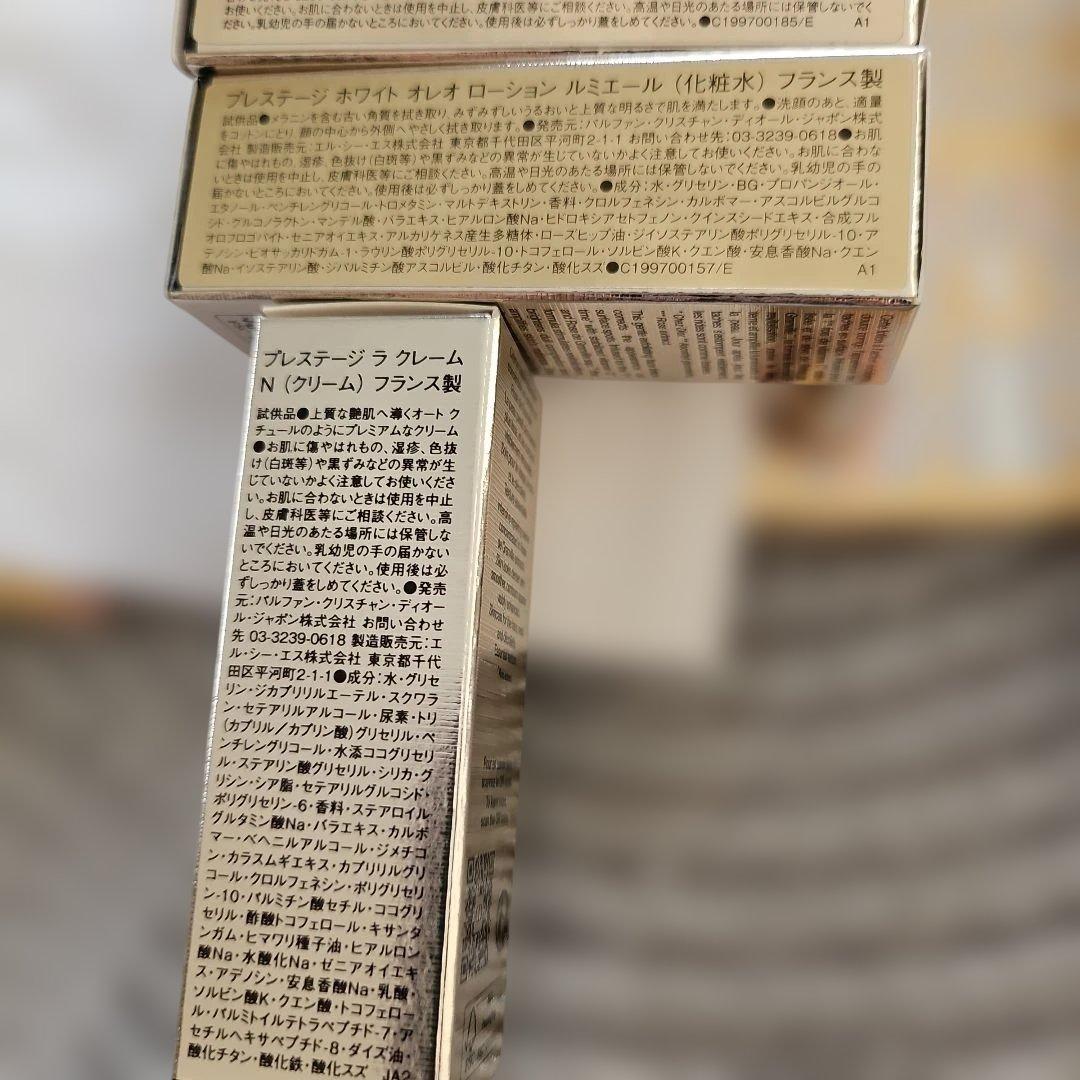 お使いください。お肌に合わないときは使用を中止し、皮膚科医等にご相談ください。高温や日光のあたる場所には保管しないでく
ださい。乳幼児の手の届かないところにおいてください。使用後は必ずしっかり蓋をしめてください。●C199700185/E A1
プレステージ ホワイト オレオ ローション ルミエール（化粧水）フランス製
試供品●メラニンを含む古い角質を拭き取り、みずみずしいうるおいと上質な明るさで肌を満たします。●洗顔のあと、適量
をコットンにとり、顔の中心から外側へやさしく拭き取ります。●発売元：パルファン・クリスチャン・ディオール・ジャポン株式
会社 製造販売元：エル・シー・エス株式会社 東京都千代田区平河町2-1-1 お問い合わせ先：03-3239-0618●お肌
に傷やはれもの、湿疹、色抜け（白斑等）や黒ずみなどの異常が生じていないかよく注意してお使いください。お肌に合わない
ときは使用を中止し、皮膚科医等にご相談ください。高温や日光のあたる場所には保管しないでください。乳幼児の手の
届かないところにおいてください。使用後は必ずしっかり蓋をしめてください。●成分：水・グリセリン・BG・プロパンジオール・
エタノール・ペンチレングリコール・トロメタミン・マルトデキストリン・香料・クロルフェネシン・カルボマー・アスコルビルグルコ
シド・グルコノラクトン・マンデル酸・バラエキス・ヒアルロン酸Na・ヒドロキシアセトフェノン・クインスシードエキス・合成フル
オロフロゴパイト・ゼニアオイエキス・アルカリゲネス産生多糖体・ローズヒップ油・ジイソステアリン酸ポリグリセリル-10・ア
デノシン・ビオサッカリドガム-1・ラウリン酸ポリグリセリル-10・トコフェロール・ソルビン酸K・クエン酸・安息香酸Na・クエン
酸Na・イソステアリン酸・ジパルミチン酸アスコルビル・酸化チタン・酸化スズ●C199700157/E A1
プレステージ ラ クレーム
N（クリーム）フランス製
試供品●上質な艶肌へ導くオート ク
チュールのようにプレミアムなクリーム
●お肌に傷やはれもの、湿疹、色抜
け（白斑等）や黒ずみなどの異常が生
じていないかよく注意してお使いくださ
い。お肌に合わないときは使用を中止
し、皮膚科医等にご相談ください。高
温や日光のあたる場所には保管しな
いでください。乳幼児の手の届かない
ところにおいてください。使用後は必
ずしっかり蓋をしめてください。●発売
元：パルファン・クリスチャン・ディオー
ル・ジャポン株式会社 お問い合わせ
先 03-3239-0618 製造販売元：エ
ル・シー・エス株式会社 東京都千代
田区平河町2-1-1●成分：水・グリセ
リン・ジカプリリルエーテル・スクワラ
ン・セテアリルアルコール・尿素・トリ
（カプリル／カプリン酸）グリセリル・ペ
ンチレングリコール・水添ココグリセリ
ル・ステアリン酸グリセリル・シリカ・グ
リシン・シア脂・セテアリルグルコシド・
ポリグリセリン-6・香料・ステアロイル
グルタミン酸Na・バラエキス・カルボ
マー・ベヘニルアルコール・ジメチコ
ン・カラスムギエキス・カプリリルグリ
コール・クロルフェネシン・ポリグリセリ
ン-10・パルミチン酸セチル・ココグリ
セリル・酢酸トコフェロール・キサンタ
ンガム・ヒマワリ種子油・ヒアルロン
酸Na・水酸化Na・ゼニアオイエキ
ス・アデノシン・安息香酸Na・乳酸・
ソルビン酸K・クエン酸・トコフェロー
ル・パルミトイルテトラペプチド-7・ア
セチルヘキサペプチド-8・ダイズ油・
酸化チタン・酸化鉄・酸化スズ JA2